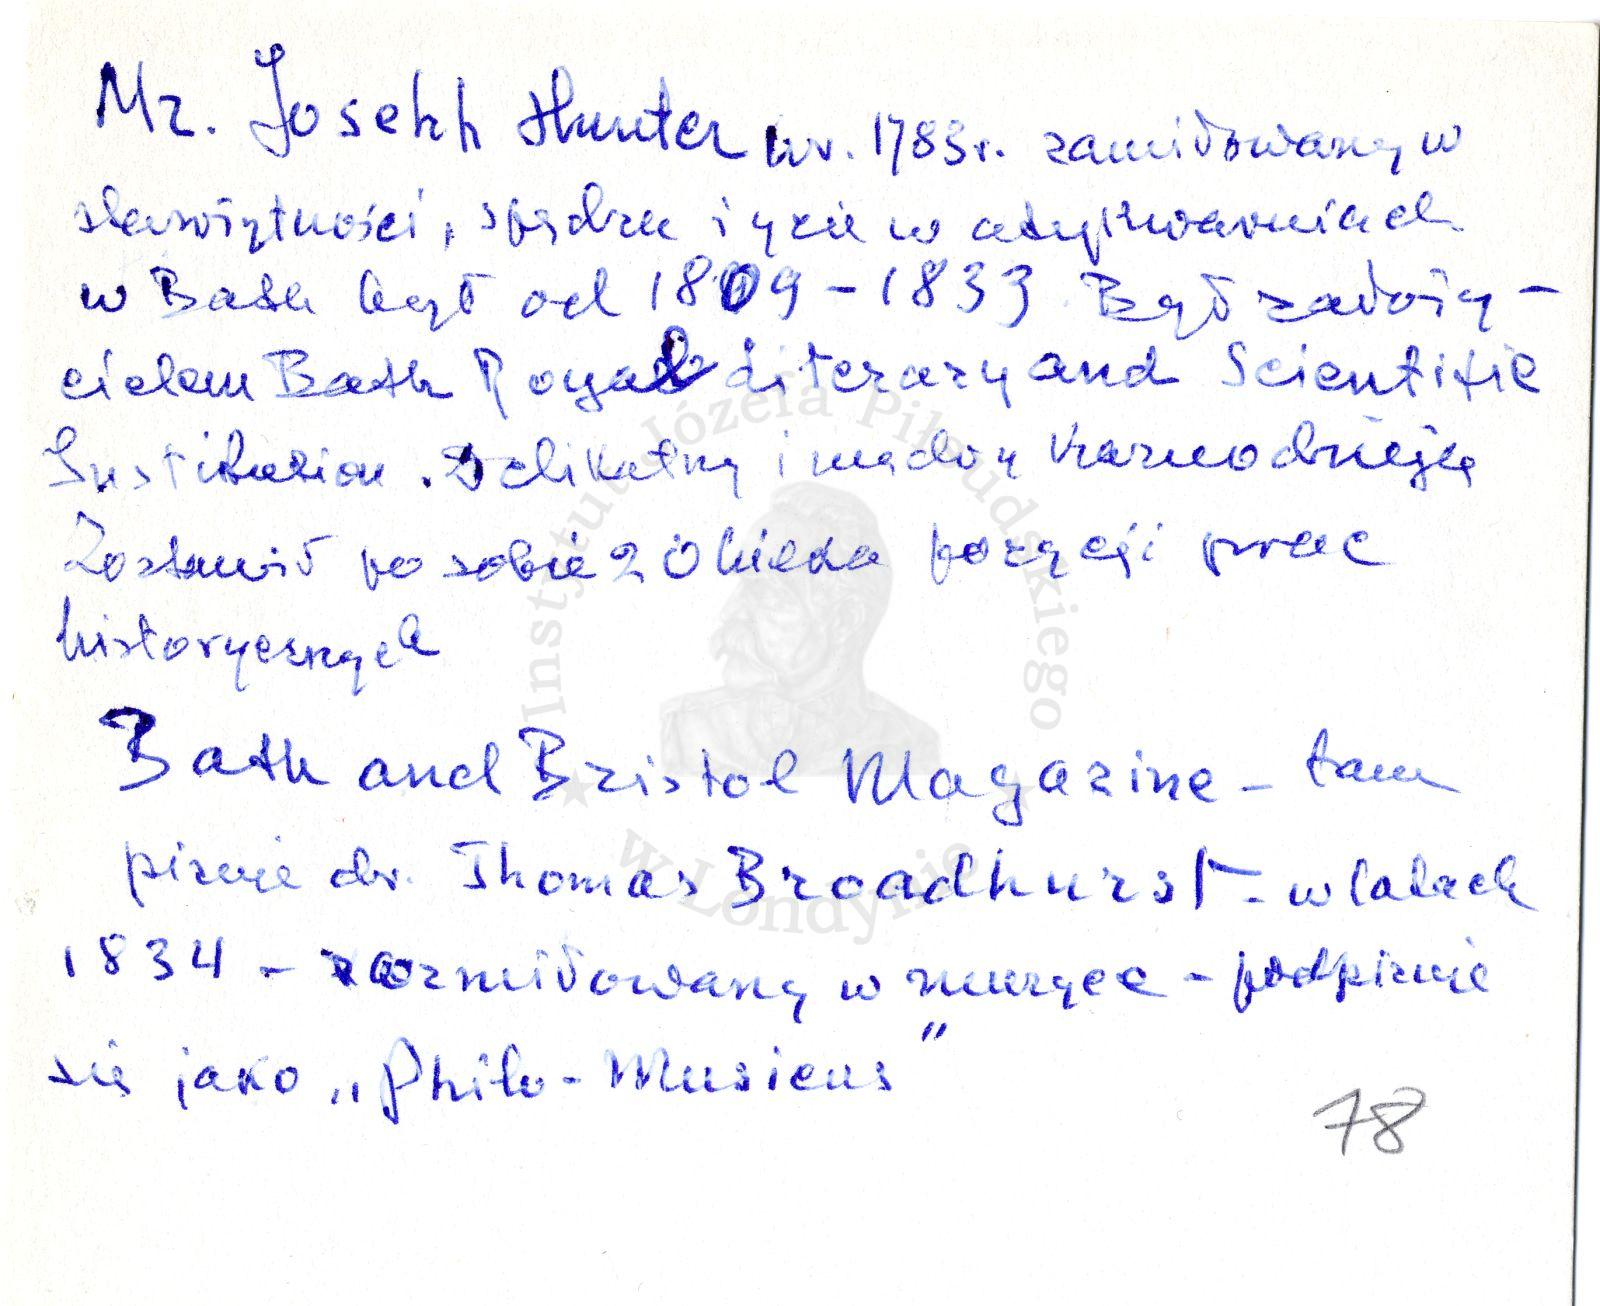 Mr. Joseph Hunter ur. 1783r. zamiłowany w
starożytności, spędza życie w
w Bath był od 1809 - 1833 Był założy-
cielem Bath Royal Literary and Scientific
Institution. Delikatny i mądry kaznodzieja
Zostawił po sobie 20 kilka pozycji prac
historycznych
Bath and Bristol Magazine - tam
pisuje dr. Thomas Broadhurst - w latach
1834 - rozmiłowany w muzyce - podpisuje
się jako „Philo-Musicus"
78
Instytut Józefa Piłsudskiego
w Londynie